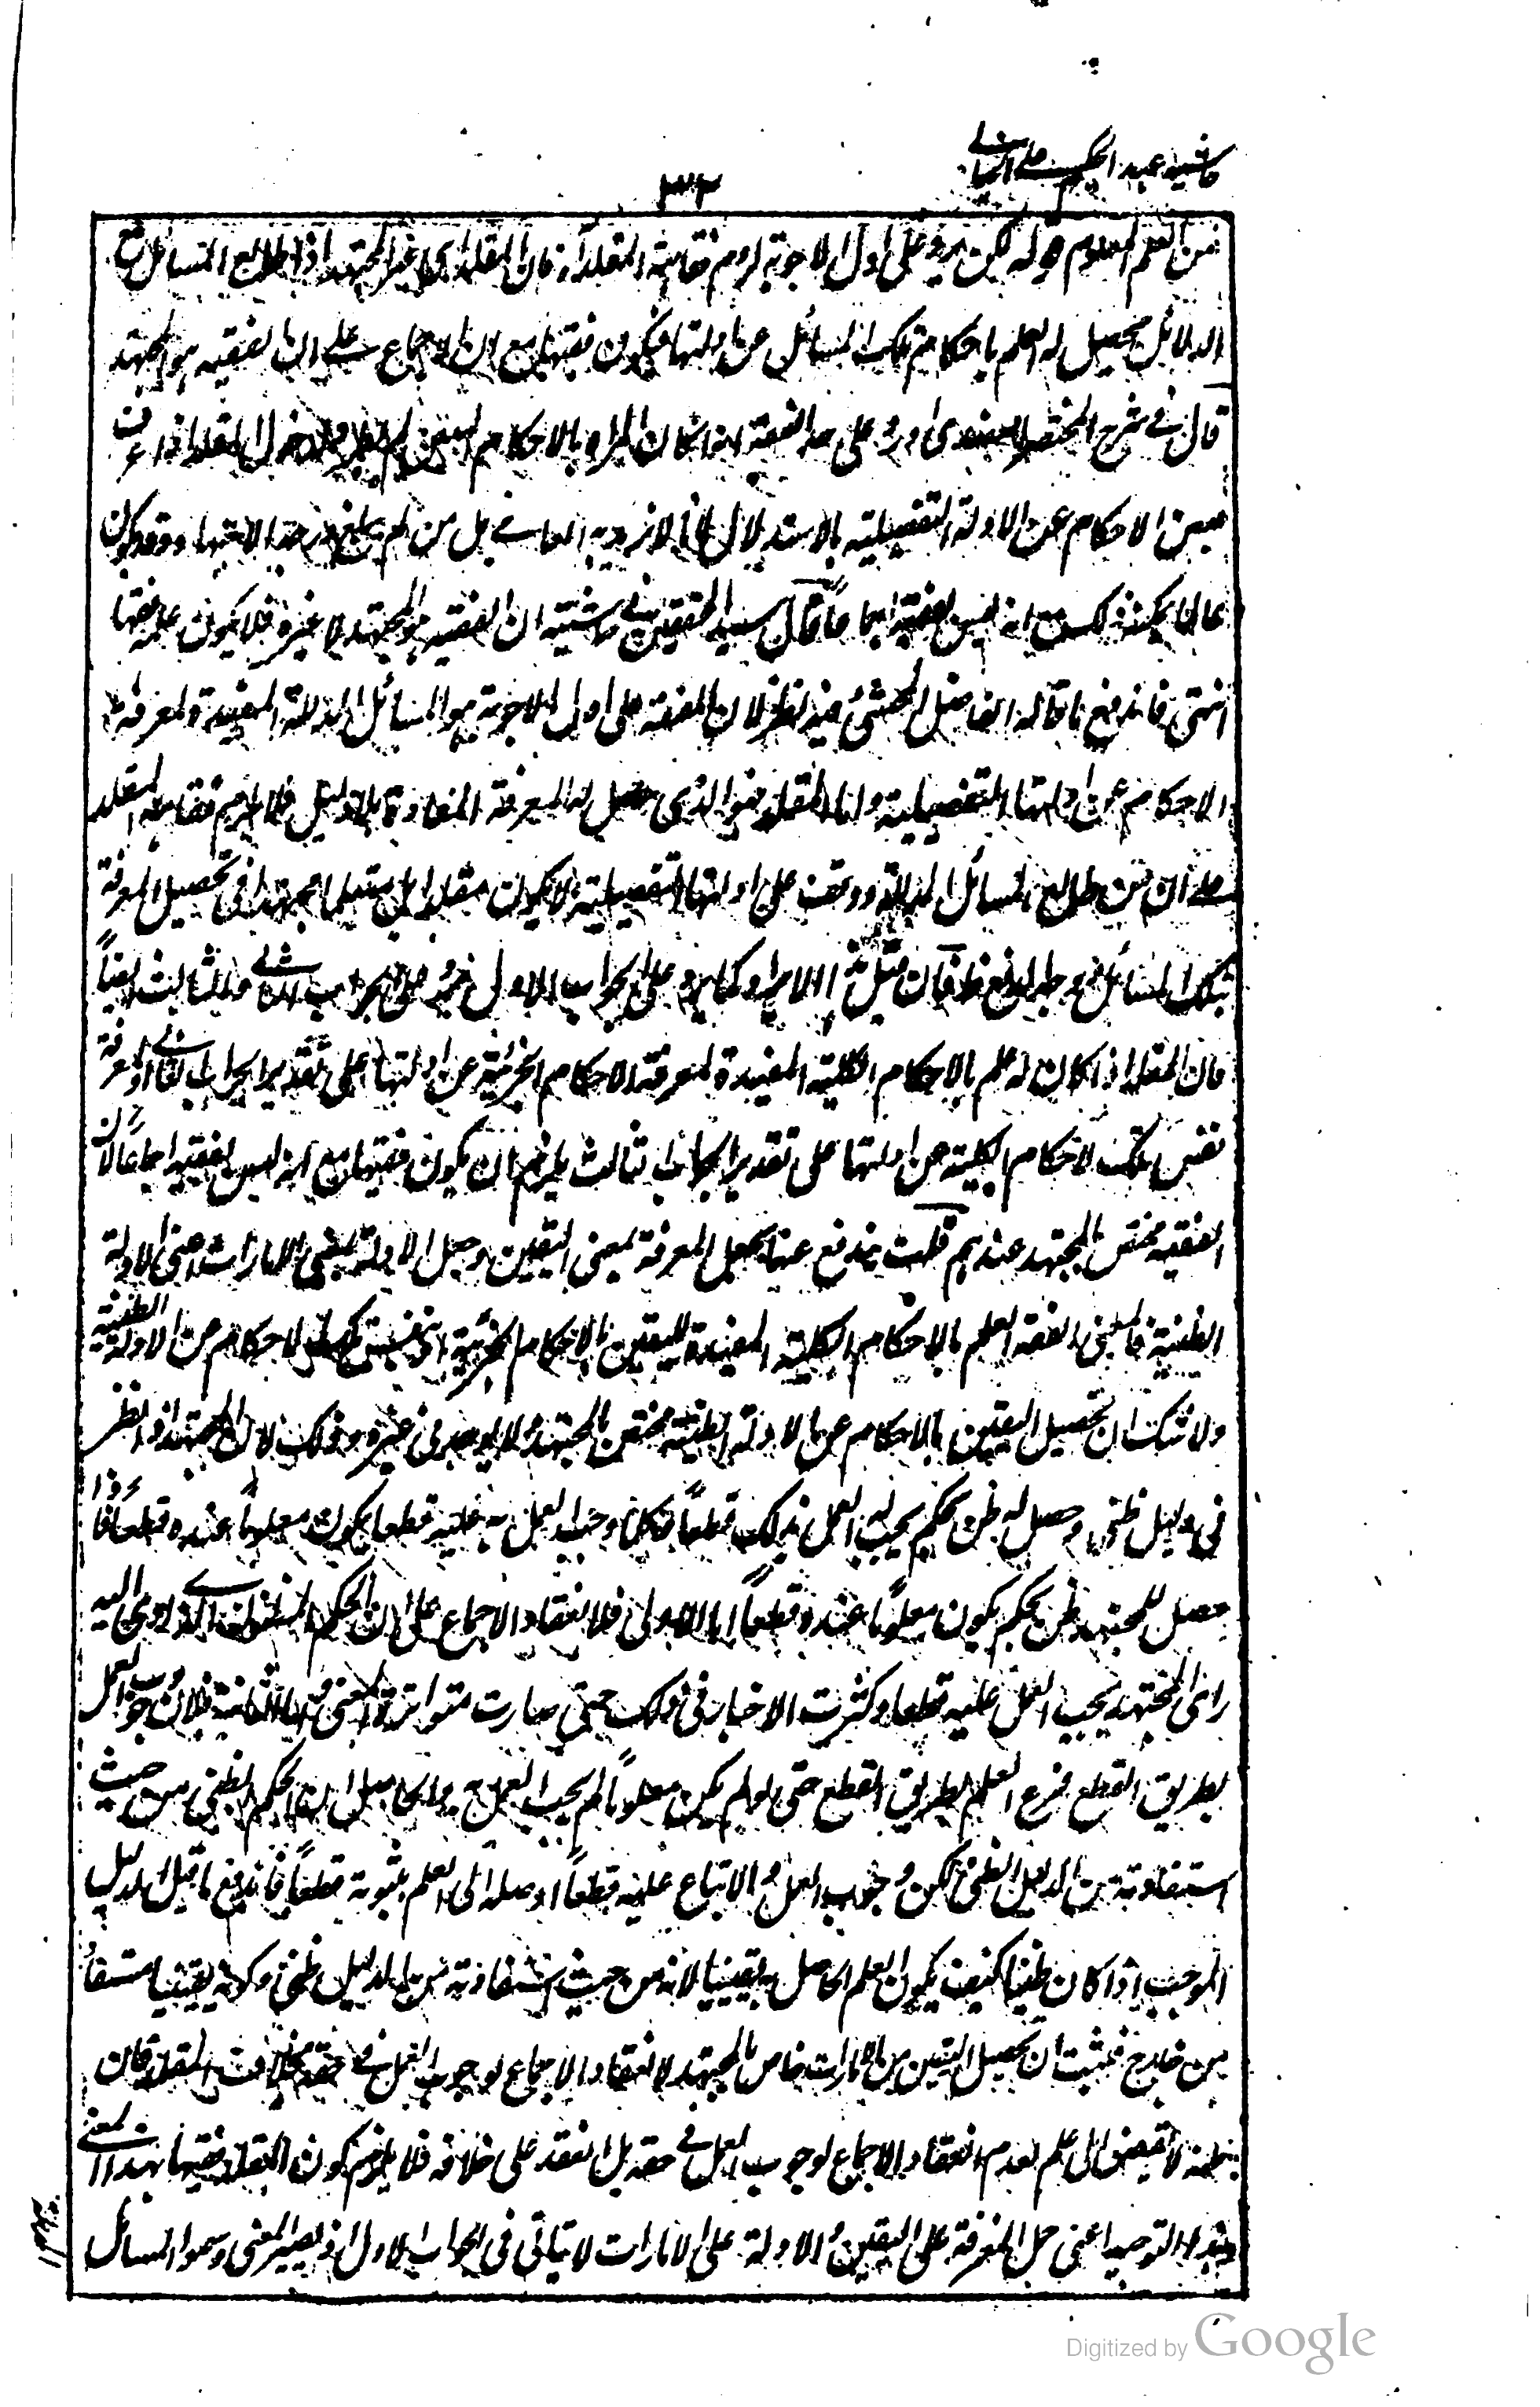 حاشيه عبد الحكيم على الخيالي
٣٢
من العلم المعلوم قوله لكن يرد على اول الاجوبة لزوم فقاهة المقلد اه فان المقلد اى غير المجتهد اذا طالع المسائل مع
الدلائل يحصل له العلم باحكام تلك المسائل عن ادلتها فيكون فقيها مع ان الاجماع على ان الفقيه هو المجتهد
قال فى شرح المختصر العضدى اورد على حد الفقه انه ان كان المراد بالاحكام البعض لم يطرد لدخول المقلد اذا عرف
بعض الاحكام عن الادلة التفصيلية بالاستدلال لانا لا نريد به العامى بل من لم يبلغ درجة الاجتهاد وقد يكون
عالما يمكنه ذلك مع انه ليس بفقيه اجماعا قال سيد المحققين فى حاشيته ان الفقيه هو المجتهد لا غيره فلا يكون علمه فقها
انتهى فاندفع ما قاله الفاضل المحشى فيه نظر لان الفقه على اول الاجوبة هو المسائل المدللة المفيدة لمعرفة
الاحكام عن ادلتها التفصيلية واما المقلد فهو الذى حصل له المعرفة المفادة بلا دليل فلا يلزم فقاهة المقلد
على ان من طالع المسائل المدللة ووقف على ادلتها التفصيلية لا يكون مقلدا بل متعلما مجتهدا فى تحصيل المعرفة
بتلك المسائل وجه الدفع ظ فان قيل هذا الايراد كما يرد على الجواب الاول يرد على الجواب الثانى والثالث ايضا
فان المقلد اذا كان له علم بالاحكام الكلية المفيدة لمعرفة الاحكام الجزئية عن ادلتها على تقدير الجواب الثانى او معرفة
نفس تلك الاحكام الكلية عن ادلتها على تقدير الجواب الثالث يلزم ان يكون فقيها مع انه ليس بفقيه اجماعا لان
الفقيه مختص بالمجتهد عندهم قلت يندفع عنها بجعل المعرفة بمعنى اليقين وجعل الادلة بمعنى الامارات اعنى الادلة
الظنية فالمعنى الفقه العلم بالاحكام الكلية المفيدة لليقين بالاحكام الجزئية او بنفس تلك الاحكام من الادلة الظنية
ولا شك ان تحصيل اليقين بالاحكام عن الادلة الظنية مختص بالمجتهد لا يوجد فى غيره وذلك لان المجتهد اذا نظر
فى دليل ظنى وحصل له ظن بحكم يجب له العمل بذلك قطعا فكلما وجب العمل به عليه قطعا يكون معلوما عنده قطعا فاذا
حصل للمجتهد ظن بحكم يكون معلوما عنده قطعا اما الاولى فلانعقاد الاجماع على ان الحكم المظنون الذى ادى اليه
راى المجتهد يجب العمل عليه قطعا وكثرت الاخبار فى ذلك حتى صارت متواترة المعنى واما الثانية فلان وجوب العمل
بطريق القطع فرع العلم بطريق القطع حتى لو لم يكن معلوما لم يجب العمل به والحاصل ان الحكم الظنى من حيث
استفادته من الدليل الظنى لكن وجوب العمل والاتباع عليه قطعا اوصله الى العلم بثبوته قطعا فاندفع ما قيل الدليل
الموجب اذا كان ظنيا كيف يكون العلم الحاصل به يقينيا لانه من حيث استفادته من الدليل ظنى وكونه يقينيا مستفاد
من خارج فثبت ان تحصيل اليقين من الامارات خاص بالمجتهد لانعقاد الاجماع لوجوب العمل فى حقه بخلاف المقلد فان
ظنه لا يفضى الى علم لعدم انعقاد الاجماع لوجوب العمل فى حقه بل انعقد على خلافه فلا يلزم كون المقلد فقيها بهذا المعنى
هذا التوجيه اعنى حمل المعرفة على اليقين والادلة على الامارات لا يتاتى فى الجواب الاول اذ يصير المعنى وسموا المسائل